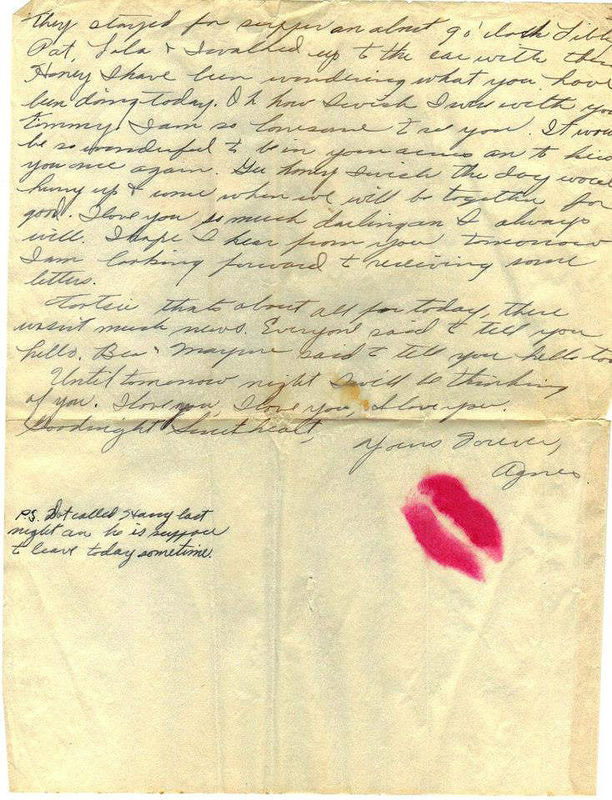 They stayed for supper an about 9 o'clock
Pat, Lola & I walked up to the car with them
Honey I have been wondering what you have
been doing today. Oh how I wish I was with you
timmy. I am so lonesome to see you. It wou
be so wonderful to be in your arms an to kiss
you once again. Gee honey I wish the day woul
hurry up & come when we will be together for
good. I love you so much darling an I always
will. I hope I hear from you tomorrow
I am looking forward to receiving some
letters.
Tootsie thats about all for today, there
wasn't much news. Everyone said to tell you
hello. Bea & Mayme said to tell you hello too
Until tomorrow night I will be thinking
of you. I love you, I love you, I love you.
Goodnight Sweetheart,
Yours Forever,
Agnes
P.S. Dot called Harry last
night an he is suppose
to leave today sometime.